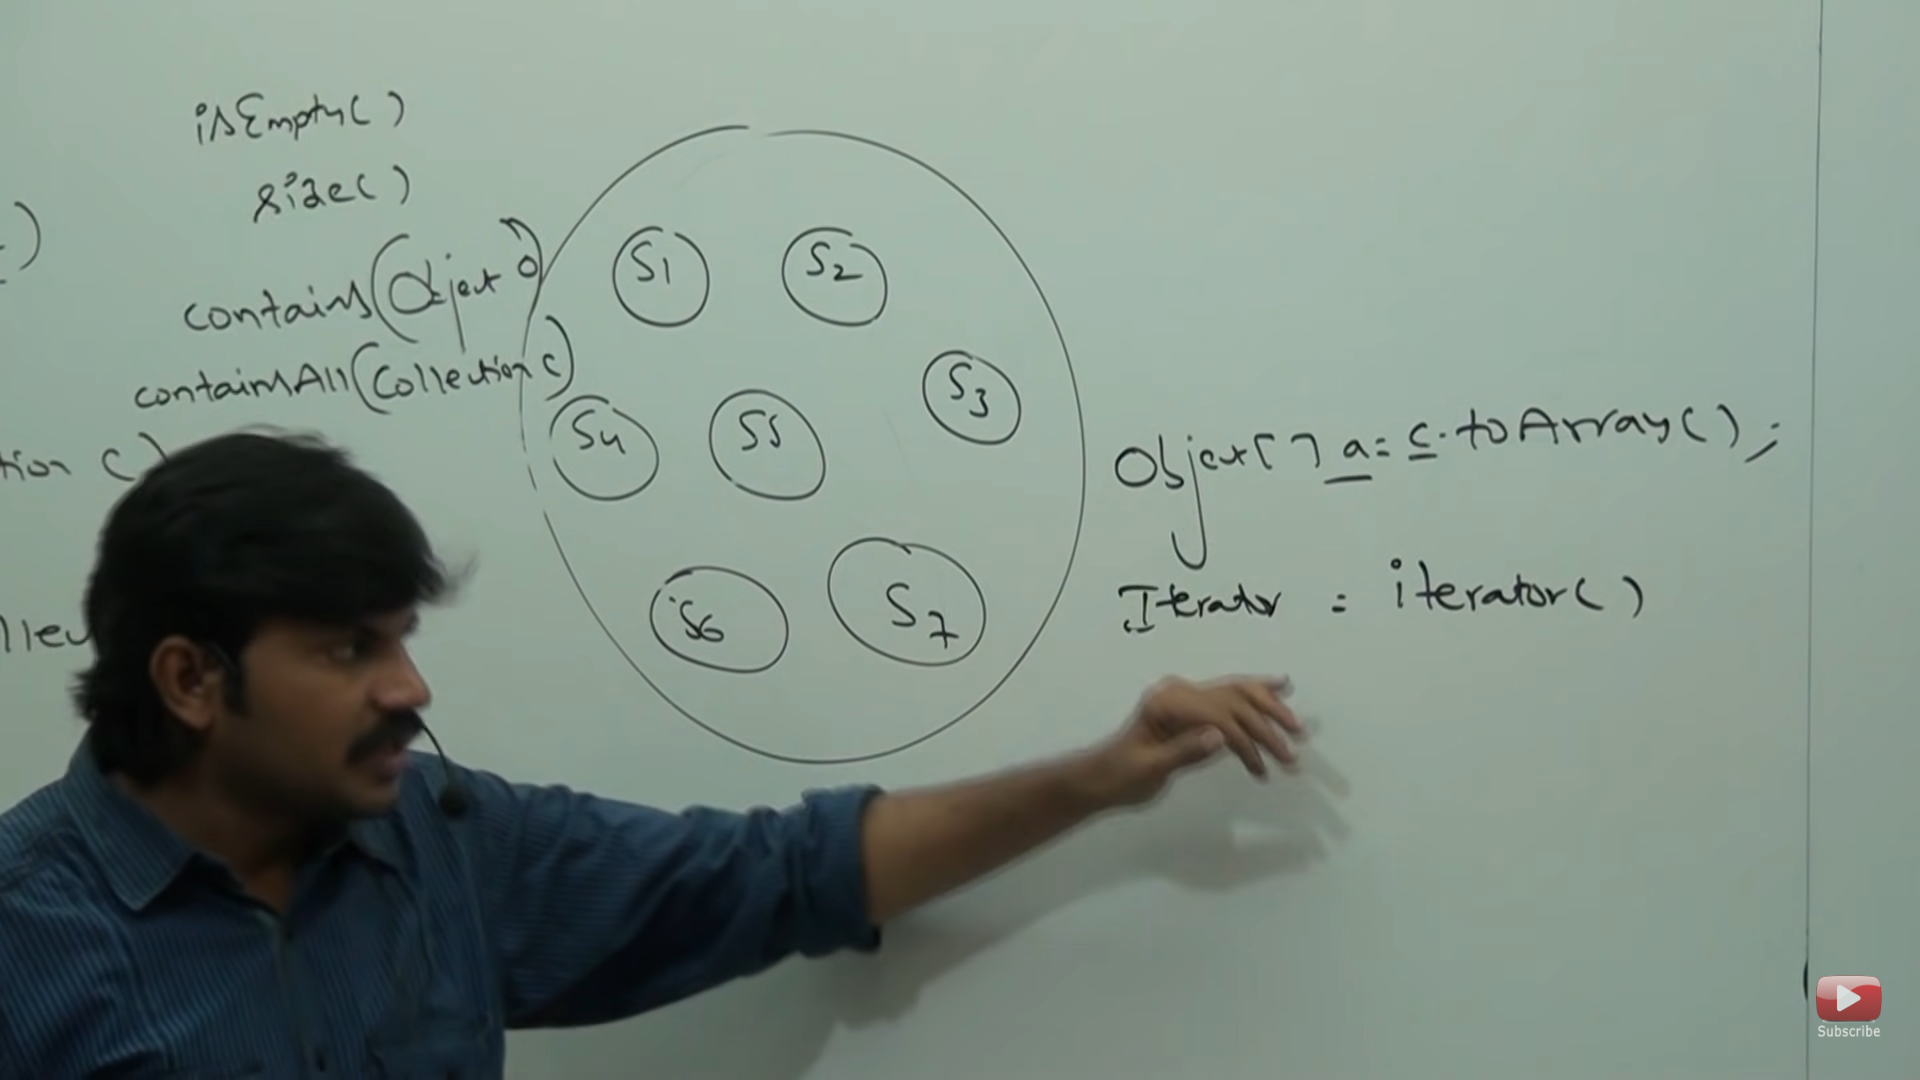 isEmpty()
size()
contains(Object o)
containsAll(Collection c)
tion c)
S1
S2
S3
S4
S5
S6
S7
Object[] a = c.toArray();
Iterator = iterator()
Subscribe